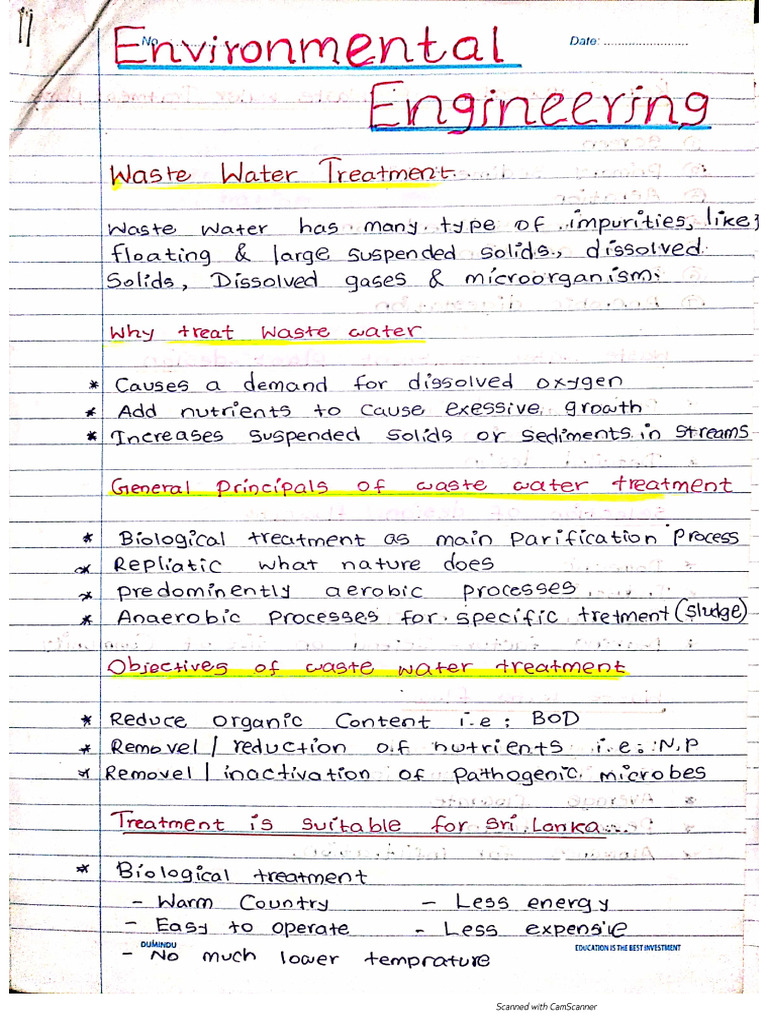 No
Date: ........................
Environmental
Engineering
Waste Water Treatment.
Waste Water has many type of impurities, like;
floating & large suspended solids., dissolved.
Solids, Dissolved gases & microorganism.
Why treat waste water
* Causes a demand for dissolved oxygen
* Add nutrients to cause exessive growth
* Increases suspended solids or sediments in streams
General principals of waste water treatment
* Biological treatment as main parification process
* Repliatic what nature does
* predominently aerobic processes
* Anaerobic Processes for specific tretment (sludge)
Objectives of waste water treatment
* Reduce organic content i.e : BOD
* Removel / reduction of nutrients i.e : N,P
* Removel / inactivation of pathogenic microbes
Treatment is suitable for Sri Lanka...
* Biological treatment
- Warm Country - Less energy
- Easy to operate - Less expensive
DUMINDU EDUCATION IS THE BEST INVESTMENT
- No much lower temprature
Scanned with CamScanner